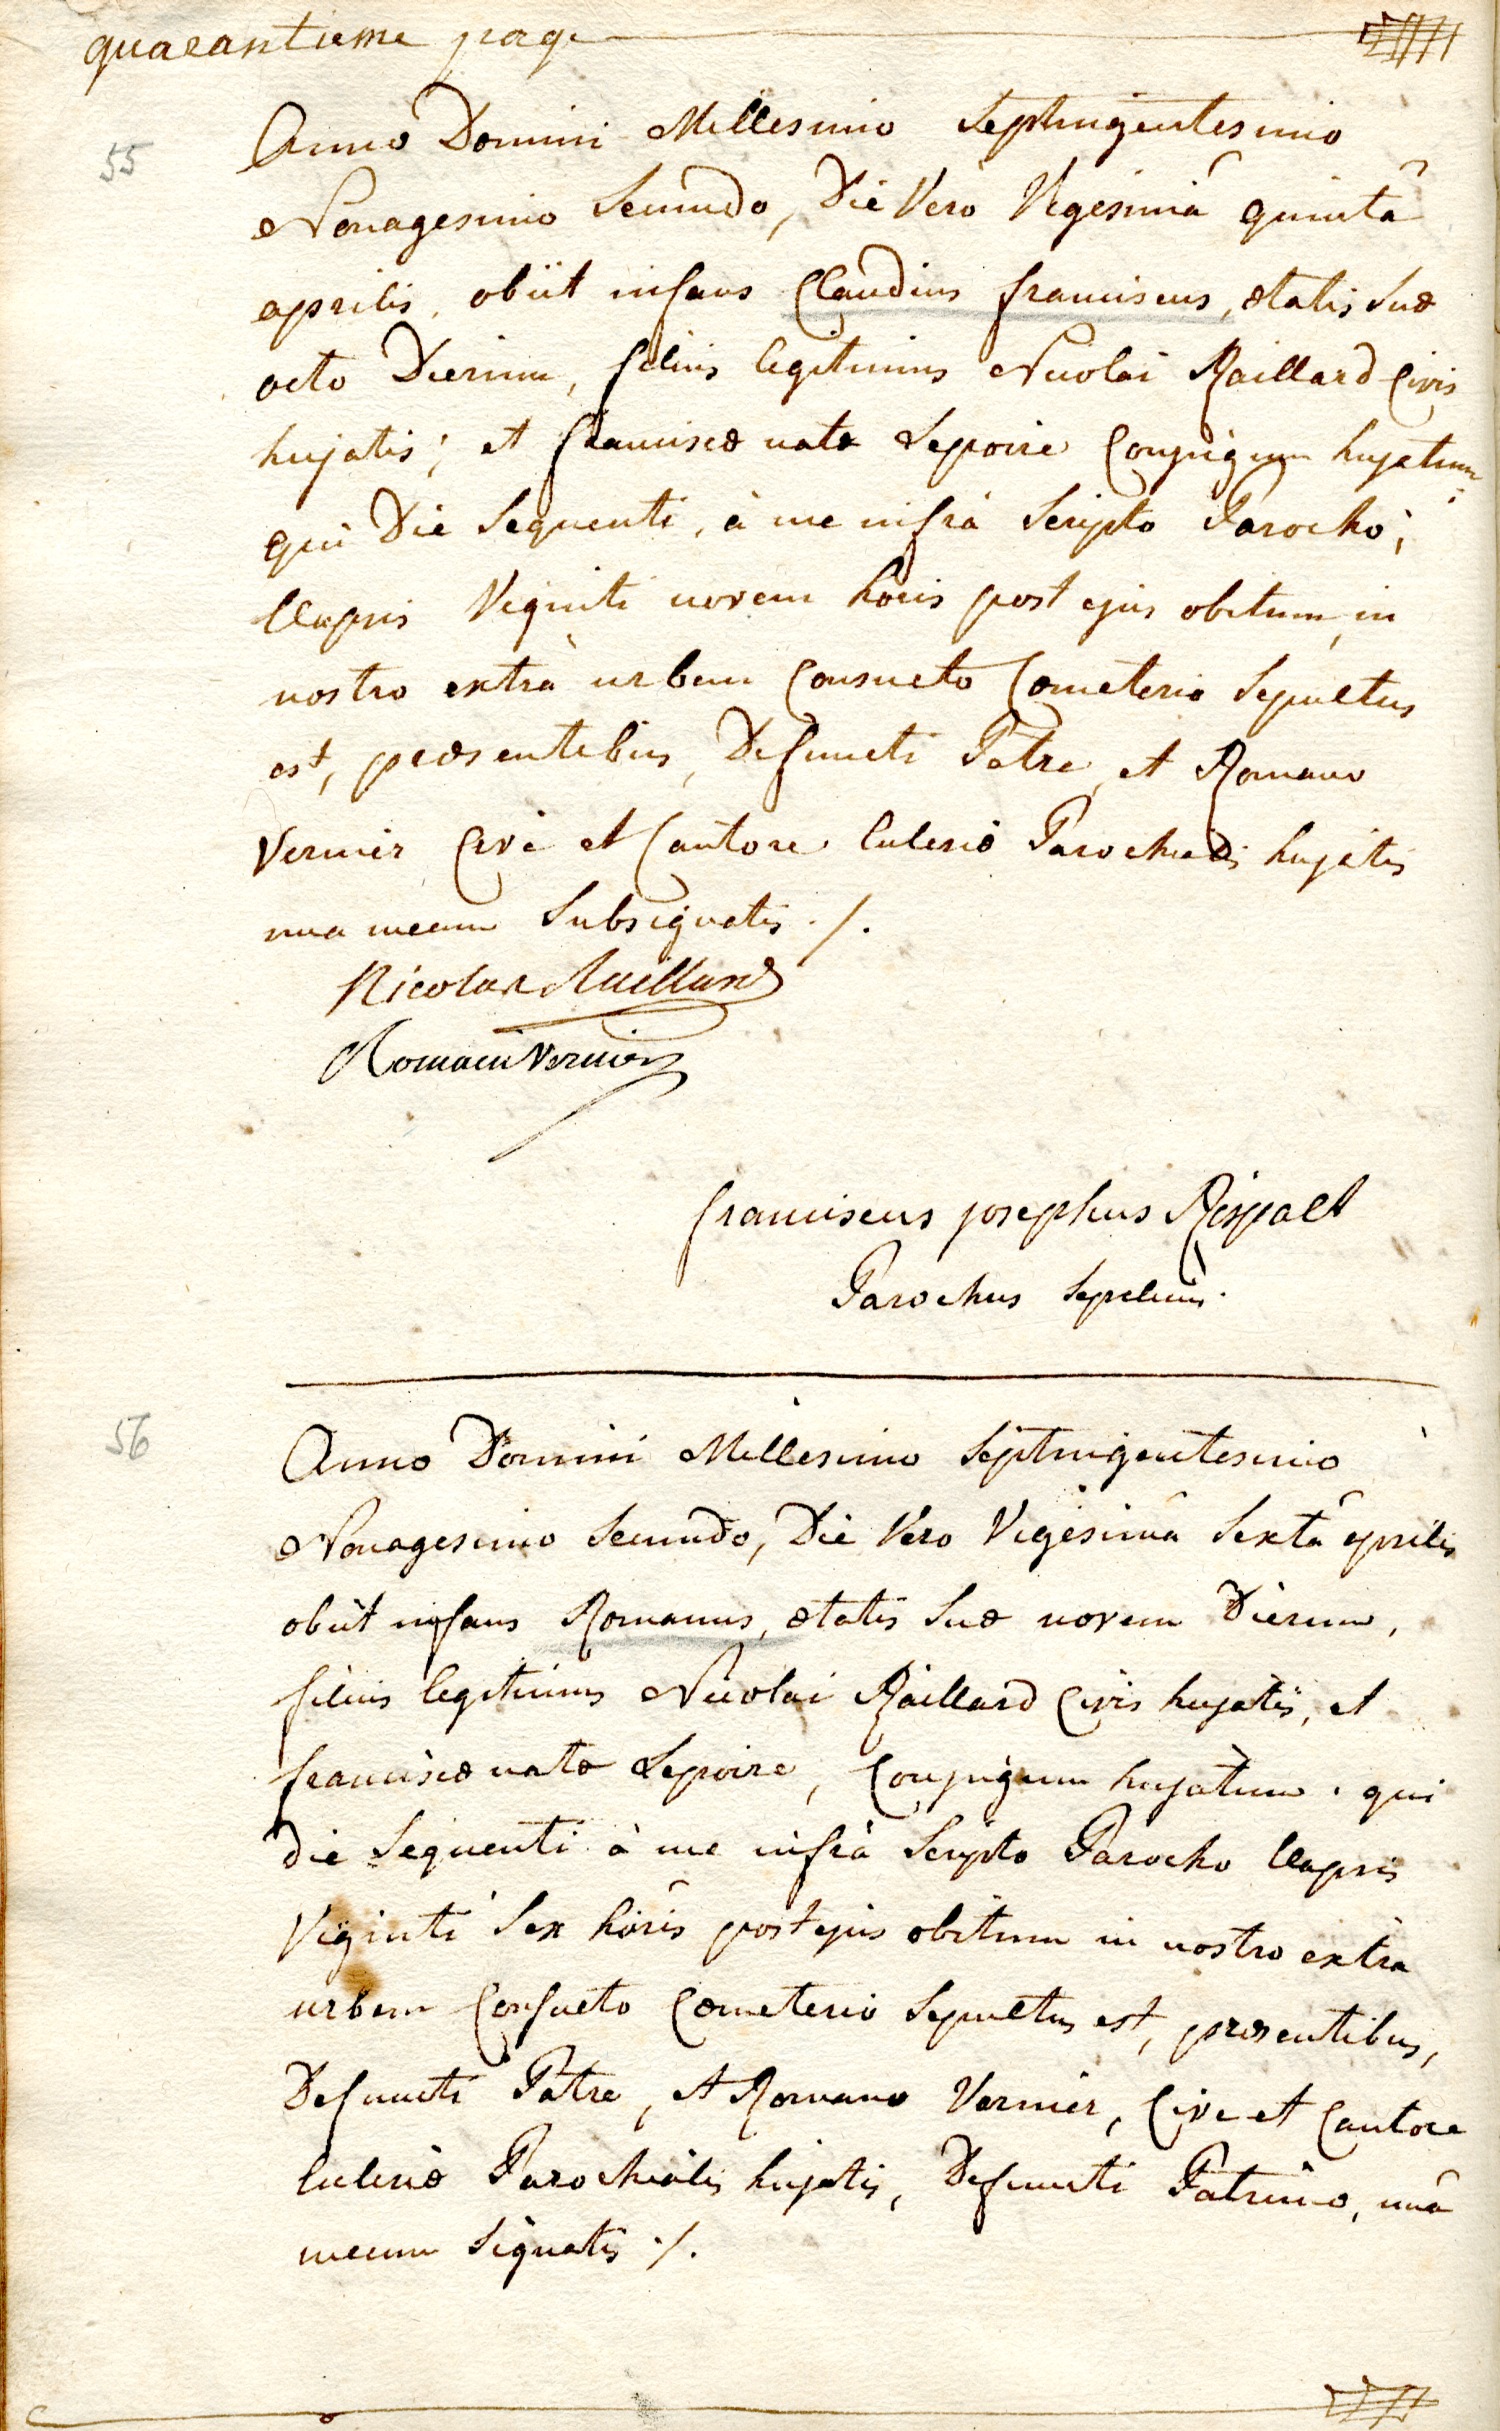 quarantieme page
55
Anno Domini Millesimo Septingentesimo
Nonagesimo Secundo, Die Vero Vigesimâ quintâ
aprilis, obiit infans Claudius franciscus, ætatis suæ
octo Dierum, filius legitimus Nicolai Raillard Civis
hujatis; et franciscæ natæ Lepoire Conjugum hujatum;
qui Die Sequenti, à me infrà Scripto Parocho;
Elapsis Viginti novem horis post ejus obitum, in
nostro extrà urbem Consueto Cœmeterio Sepultus
est, præsentibus, Defuncti Patre, et Romano
Vernier Cive et Cantore Eclesiæ Parochialis hujatis
una mecum Subsignatis ./.
Nicolas Raillard
Romain Vernier
franciscus josephus
Parochus Sepeliens.
56
Anno Domini Millesimo Septingentesimo
Nonagesimo Secundo, Die Vero Vigesimâ Sextâ aprilis
obiit infans Romanus, ætatis suæ novem Dierum,
filius legitimus Nicolai Raillard Civis hujatis, et
franciscæ natæ Lepoire, Conjugum hujatum. qui
die Sequenti à me infrà Scripto Parocho Elapsis
Viginti Sex horis post ejus obitum in nostro extrà
urbem Consueto Cœmeterio Sepultus est, præsentibus,
Defuncti Patre, et Romano Vernier, Cive et Cantore
Eclesiæ Parochialis hujatis, Defuncti Patrino, unâ
mecum Signatis ./.